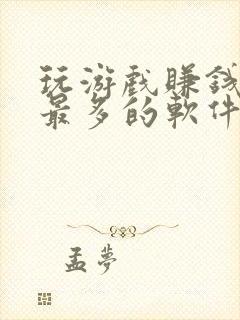 玩游戲賺錢
最多的軟件
孟夢